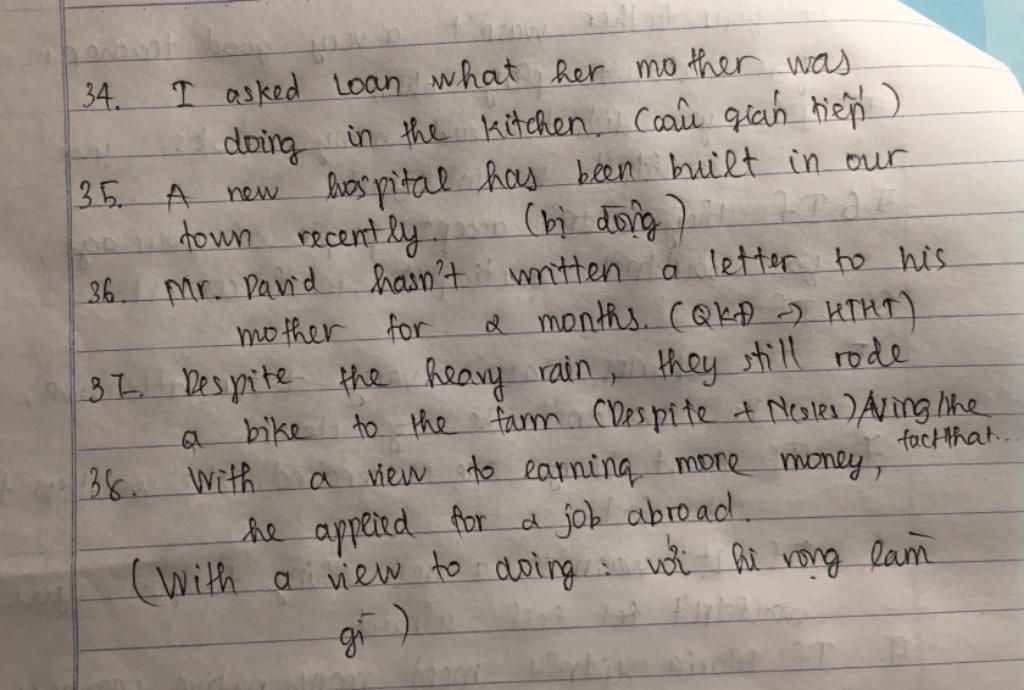 34. I asked Loan what her mother was
doing in the kitchen. (câu gián tiếp)
35. A new hospital has been built in our
town recently. (bị động)
36. Mr. David hasn't written a letter to his
mother for 2 months. (QKĐ → HTHT)
37. Despite the heavy rain, they still rode
a bike to the farm. (Despite + N(s/es)/Ving/the
fact that...
38. With a view to earning more money,
he appeied for a job abroad.
(With a view to doing : với hi vọng làm
gì)